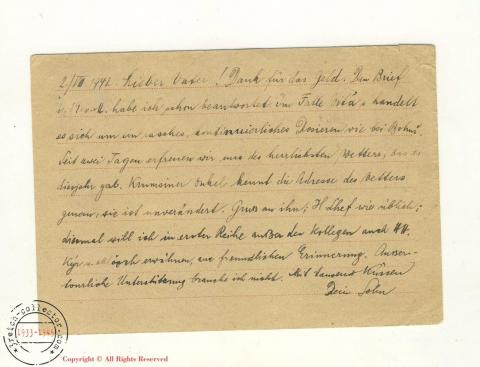 2/VIII 1942. Lieber Vater! Dank für das Geld. Den Brief
habe ich schon beantwortet. Im Falle handelt
es sich um ein rasches, kontinuierliches Dosieren wie bei
Seit zwei Tagen erfreuen wir uns des herrlichsten Wetters, das es
diesjahr gab. Onkel kennt die Adresse des Vetters
genau, sie ist unverändert. Gruss an ihn, H. Chef wie üblich;
diesmal will ich in erster Reihe außer den Kollegen auch HH.
erwähnen, aus freundlichen Erinnerung. Ausser-
Unterstützung brauche ich nicht. Mit tausend Küssen
Dein Sohn
reich-collector.com
1933-1945
Copyright © All Rights Reserved